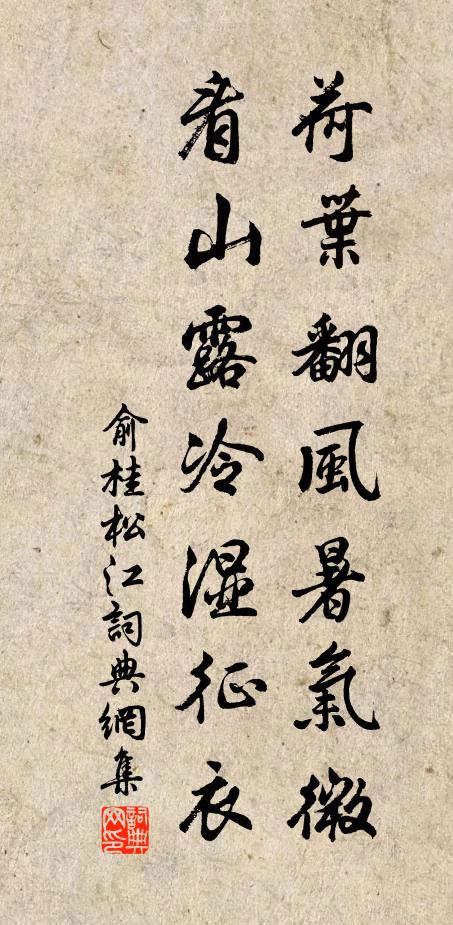 荷葉翻風暑氣微
看山露冷濕征衣
俞桂松江詞典網集
詞典網印